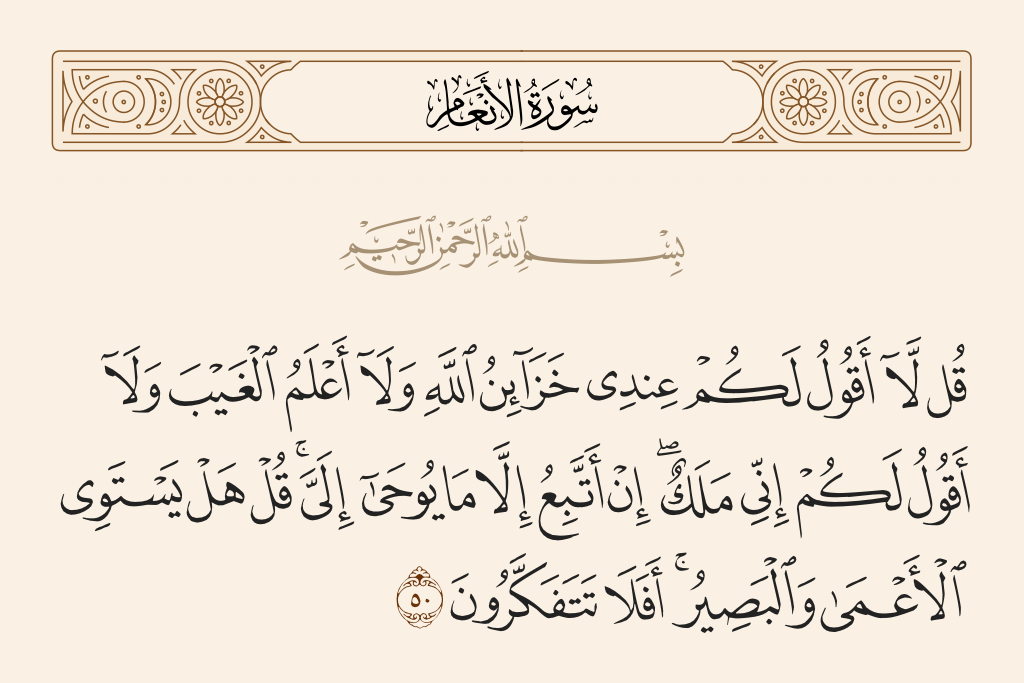 سُورَةُ الأَنْعَامِ
بِسْمِ ٱللَّهِ ٱلرَّحْمَٰنِ ٱلرَّحِيمِ
قُل لَّآ أَقُولُ لَكُمْ عِندِى خَزَآئِنُ ٱللَّهِ وَلَآ أَعْلَمُ ٱلْغَيْبَ وَلَآ
أَقُولُ لَكُمْ إِنِّى مَلَكٌ ۖ إِنْ أَتَّبِعُ إِلَّا مَا يُوحَىٰٓ إِلَىَّ ۚ قُلْ هَلْ يَسْتَوِى
ٱلْأَعْمَىٰ وَٱلْبَصِيرُ ۚ أَفَلَا تَتَفَكَّرُونَ ٥٠